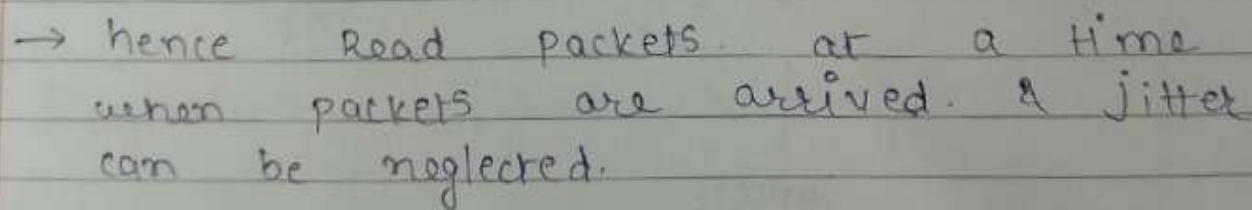 → hence Read packets at a time
when packets are arrived. & jitter
can be neglected.